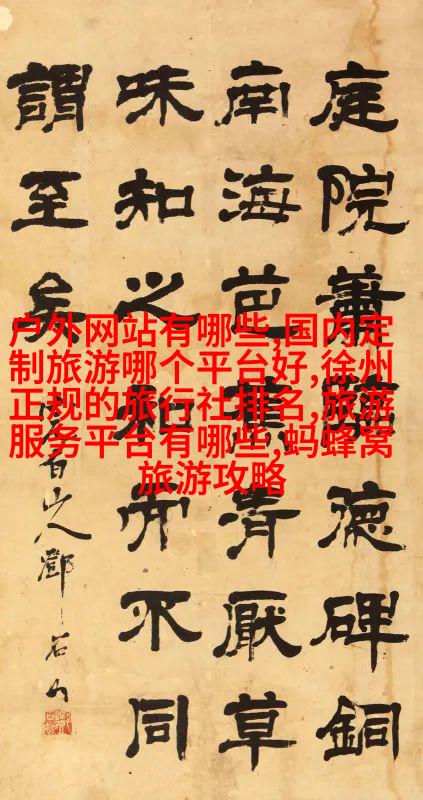 庭院蕭碑銅
南海芭蕉清厭草
味知之知不同
謂至矣
白山人鄧石
户外网站有哪些,国内定
制旅游哪个平台好,徐州
正规的旅行社排名,旅游
服务平台有哪些,蚂蜂窝
旅游攻略